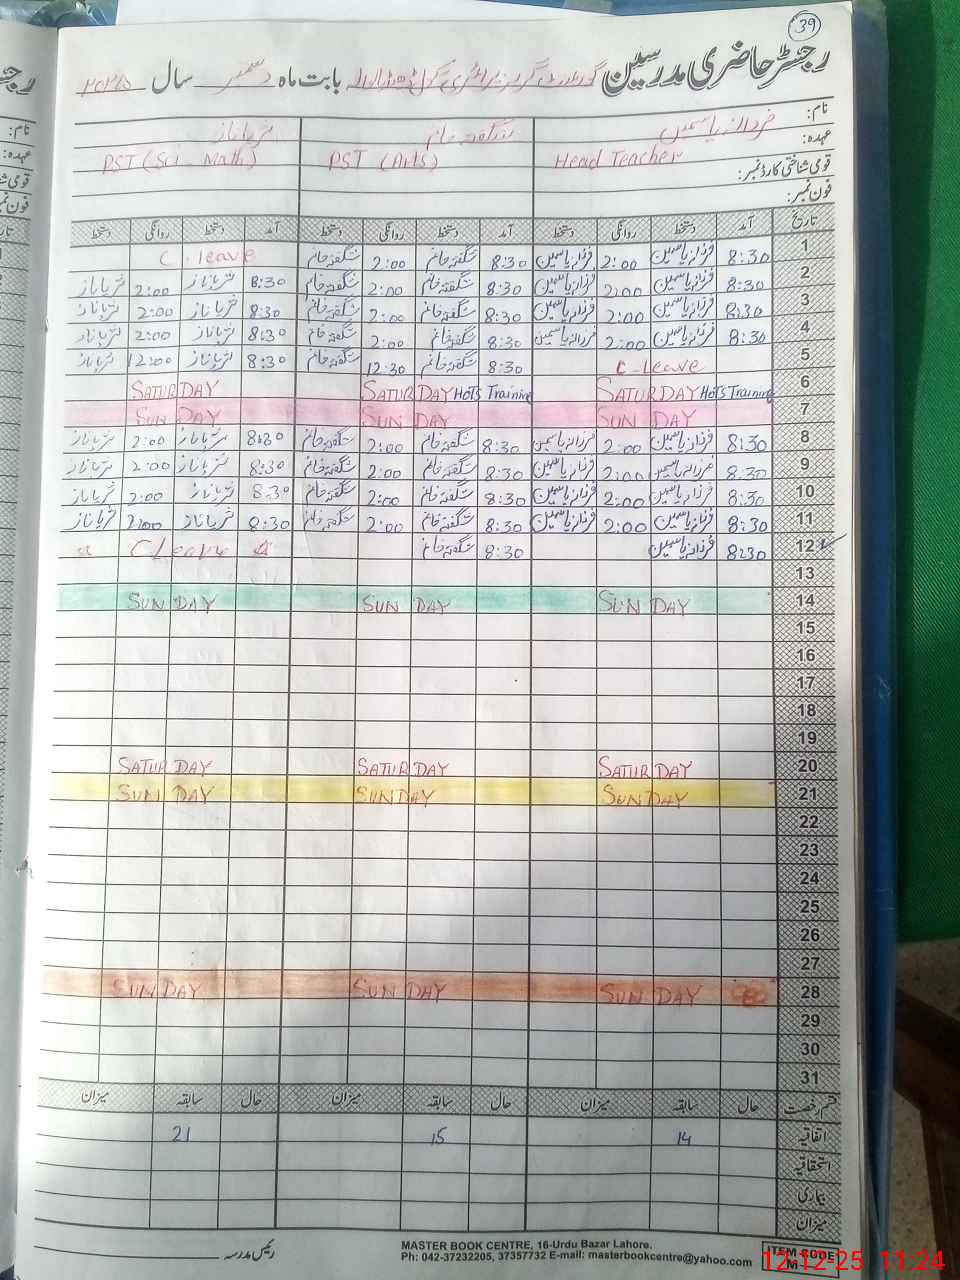 39
رجسٹر حاضری مدرسین گورنمنٹ گرلز پرائمری سکول بابت ماہ دسمبر سال ۲۰۲۵
نام: فرزانہ یاسمین شگفتہ خانم ثریا ناز
عہدہ: Head Teacher PST (Arts) PST (Sci - Math)
قومی شناختی کارڈ نمبر:
فون نمبر:
تاریخ آمد دستخط روانگی دستخط آمد دستخط روانگی دستخط آمد دستخط روانگی دستخط
1 8:30 فرزانہ یاسمین 2:00 فرزانہ یاسمین 8:30 شگفتہ خانم 2:00 شگفتہ خانم C. leave
2 8:30 فرزانہ یاسمین 2:00 فرزانہ یاسمین 8:30 شگفتہ خانم 2:00 شگفتہ خانم 8:30 ثریا ناز 2:00 ثریا ناز
3 8:30 فرزانہ یاسمین 2:00 فرزانہ یاسمین 8:30 شگفتہ خانم 2:00 شگفتہ خانم 8:30 ثریا ناز 2:00 ثریا ناز
4 8:30 فرزانہ یاسمین 2:00 فرزانہ یاسمین 8:30 شگفتہ خانم 2:00 شگفتہ خانم 8:30 ثریا ناز 2:00 ثریا ناز
5 C-leave 8:30 شگفتہ خانم 12:30 شگفتہ خانم 8:30 ثریا ناز 12:00 ثریا ناز
6 SATURDAY HOTS Training SATURDAY HOTS Training SATURDAY
7 SUNDAY SUNDAY SUNDAY
8 8:30 فرزانہ یاسمین 2:00 فرزانہ یاسمین 8:30 شگفتہ خانم 2:00 شگفتہ خانم 8:30 ثریا ناز 2:00 ثریا ناز
9 8:30 فرزانہ یاسمین 2:00 فرزانہ یاسمین 8:30 شگفتہ خانم 2:00 شگفتہ خانم 8:30 ثریا ناز 2:00 ثریا ناز
10 8:30 فرزانہ یاسمین 2:00 فرزانہ یاسمین 8:30 شگفتہ خانم 2:00 شگفتہ خانم 8:30 ثریا ناز 2:00 ثریا ناز
11 8:30 فرزانہ یاسمین 2:00 فرزانہ یاسمین 8:30 شگفتہ خانم 2:00 شگفتہ خانم 8:30 ثریا ناز 2:00 ثریا ناز
12 8:30 فرزانہ یاسمین 8:30 شگفتہ خانم C Leave
13
14 SUNDAY SUNDAY SUNDAY
15
16
17
18
19
20 SATURDAY SATURDAY SATURDAY
21 SUNDAY SUNDAY SUNDAY
22
23
24
25
26
27
28 SUNDAY SUNDAY SUNDAY
29
30
31
قسم رخصت حال سابقہ میزان حال سابقہ میزان حال سابقہ میزان
اتفاقیہ 14 15 21
استحقاقیہ
بیماری
میزان
رئیس مدرسہ
MASTER BOOK CENTRE, 16-Urdu Bazar Lahore.
Ph: 042-37232205, 37357732 E-mail: masterbookcentre@yahoo.com
ITEM CODE
12-12-25 11:24